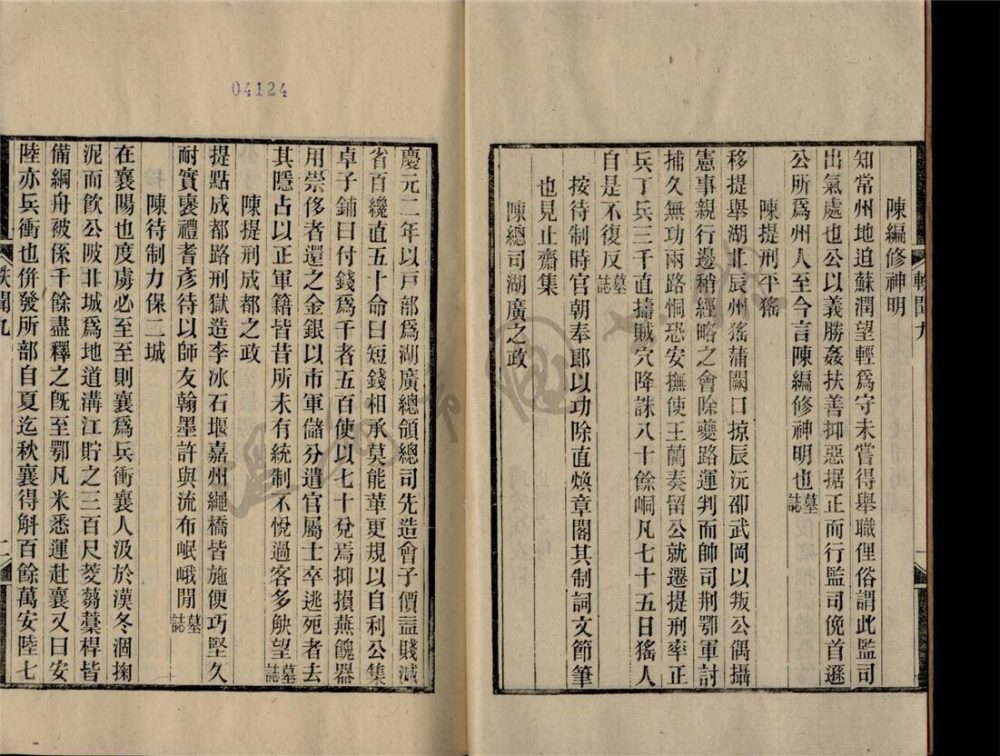 軼聞九
陳編修神明
知常州地迫蘇潤望輕爲守未嘗得舉職俚俗謂此監司
出氣處也公以義勝姦扶善抑惡据正而行監司俛首遜
公所爲州人至今言陳編修神明也墓誌
陳提刑平猺
移提舉湖北辰州猺蒲闕口掠辰沅邵武岡以叛公偶攝
憲事親行邊稍經略之會除夔路運判而帥司荆鄂軍討
捕久無功兩路恫恐安撫使王藺奏留公就遷提刑率正
兵丁兵三千直擣賊穴降誅八十餘峒凡七十五日猺人
自是不復反墓誌
按待制時官朝奉郎以功除直煥章閣其制詞文節筆
也見止齋集
陳總司湖廣之政
04124
慶元二年以戸部爲湖廣總領總司先造會子價益賤減
省百纔直五十命曰短錢相承莫能革更規以自利公集
卓子鋪曰付錢爲千者五百使以七十兌焉抑損燕餽器
用崇侈者還之金銀以市軍儲分遣官屬士卒逃死者去
其隱占以正軍籍皆昔所未有統制不悅過客多觖望墓誌
陳提刑成都之政
提點成都路刑獄造李冰石堰嘉州繩橋皆施便巧堅久
耐實襃禮耆彥待以師友翰墨許與流布岷峨閒墓誌
陳待制力保二城
在襄陽也度虜必至至則襄爲兵衝襄人汲於漢冬涸掬
泥而飮公陂北城爲地道溝江貯之三百尺菱蒭藁桿皆
備綱舟被係千餘盡釋之旣至鄂凡米悉運赴襄又曰安
陸亦兵衝也併發所部自夏迄秋襄得斛百餘萬安陸七
軼聞九
二